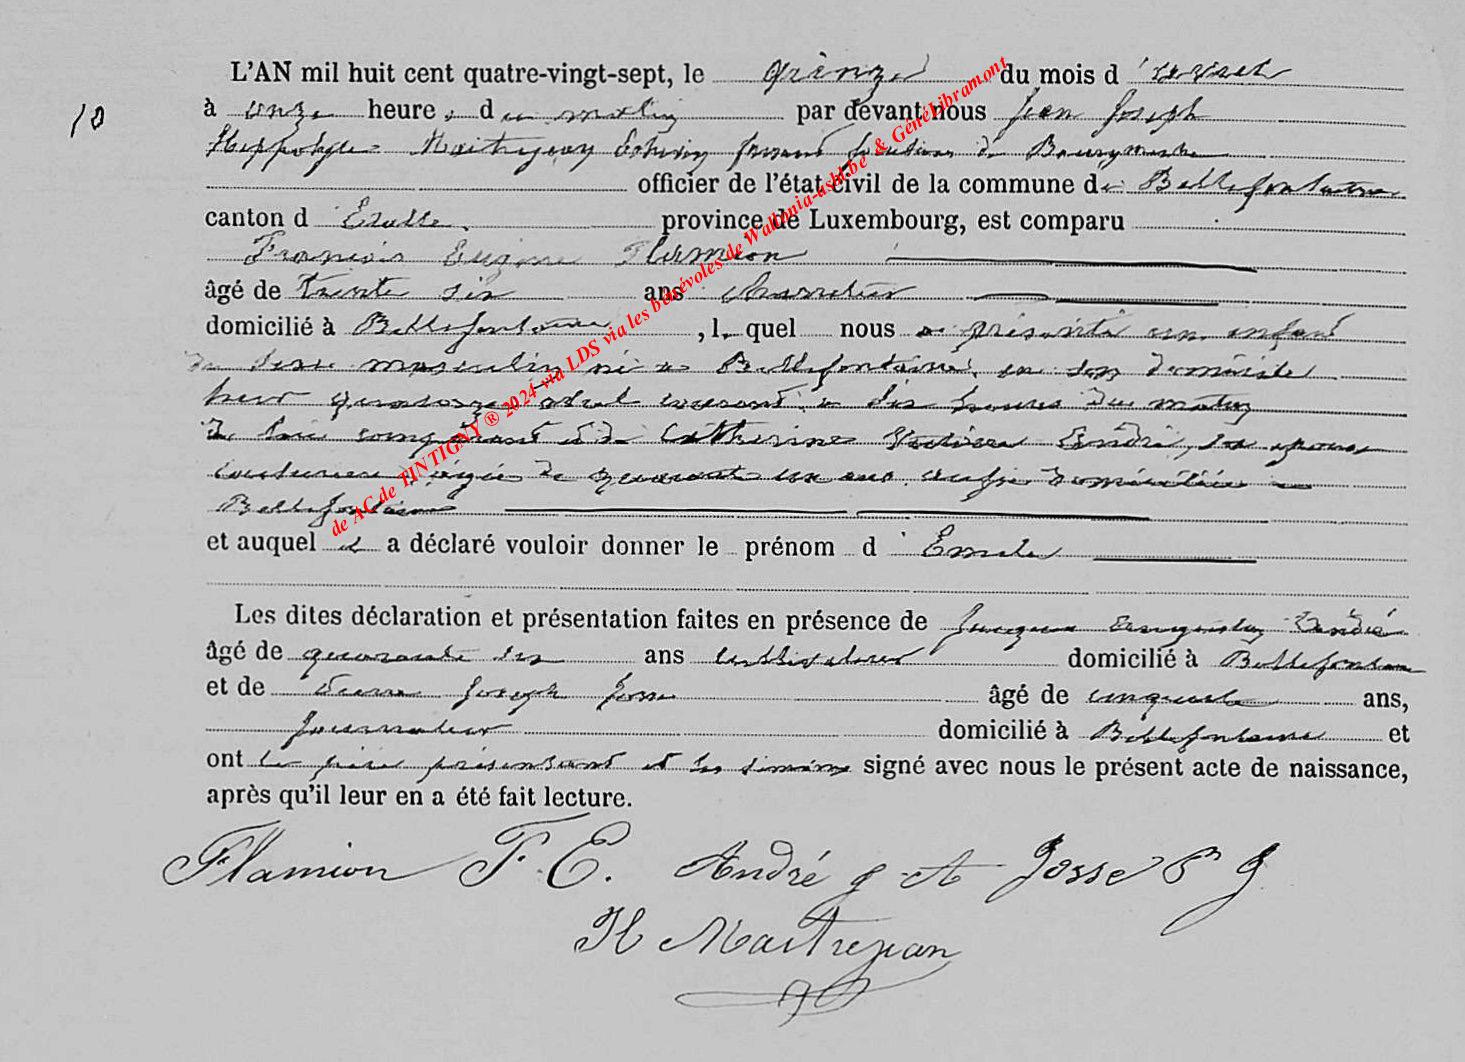 L'AN mil huit cent quatre-vingt-sept, le quinze du mois d'avril
10
à onze heures du matin par devant nous Jean Joseph
Hippolyte Maitrejean Echevin faisant fonctions de Bourgmestre
officier de l'état civil de la commune de Bellefontaine
canton d'Etalle, province de Luxembourg, est comparu
François Eugène Flamion
âgé de trente six ans charretier
domicilié à Bellefontaine, lequel nous a présenté un enfant
du sexe masculin né à Bellefontaine, en son domicile
hier quatorze avril courant à dix heures du matin
de lui comparant et de Catherine André, son épouse
couturière âgée de quarante un ans aussi domiciliée à
Bellefontaine
et auquel il a déclaré vouloir donner le prénom d'Emile
Les dites déclaration et présentation faites en présence de Jacques Augustin André
âgé de quarante six ans cultivateur domicilié à Bellefontaine
et de Pierre Joseph Josse âgé de cinquante ans,
journalier domicilié à Bellefontaine et
ont le père présentant et les témoins signé avec nous le présent acte de naissance,
après qu'il leur en a été fait lecture.
Flamion F. E. André J A Josse P J
H Maitrejean
de AC de TINTIGNY ® 2024 via LDS via les bénévoles de Wallonia-asbl.be & GénéLibramont